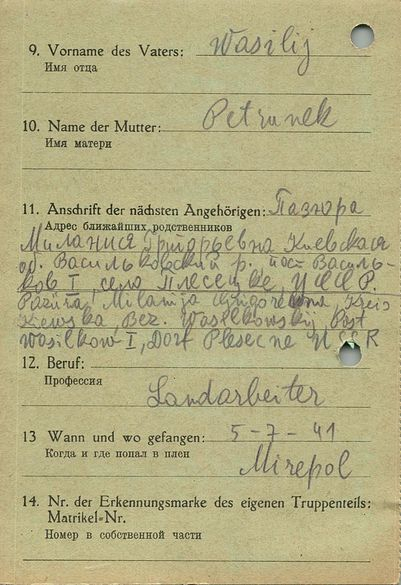 9. Vorname des Vaters: Wasilij
Имя отца
10. Name der Mutter: Petrunek
Имя матери
11. Anschrift der nächsten Angehörigen: Пазюра
Адрес ближайших родственников
Милания Григорьевна Киевская
об. Васильковский р. пост Василь-
ков I, село Плесецке, УССР.
Paziura, Milanija Grigorewna, Kreis
Kiewska, Bez. Wasilkowskij Post
Wasilkow I, Dorf Plesecne USSR
12. Beruf:
Профессия
Landarbeiter
13 Wann und wo gefangen: 5-7-41
Когда и где попал в плен
Miropol
14. Nr. der Erkennungsmarke des eigenen Truppenteils:
Matrikel=Nr.
Номер в собственной части